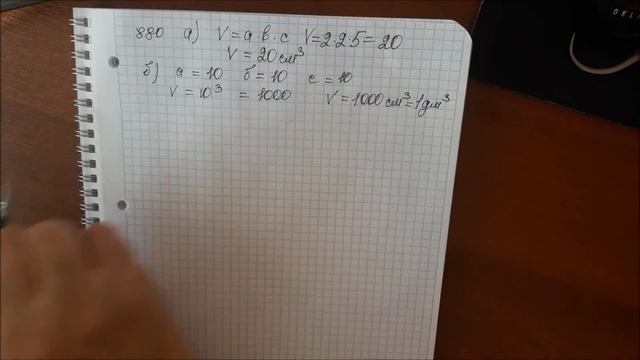 880 а) V = a·b·c V = 2·2·5 = 20
V = 20 см³
б) a = 10 б = 10 c = 10
V = 10³ = 1000 V = 1000 см³ = 1 дм³
OKI